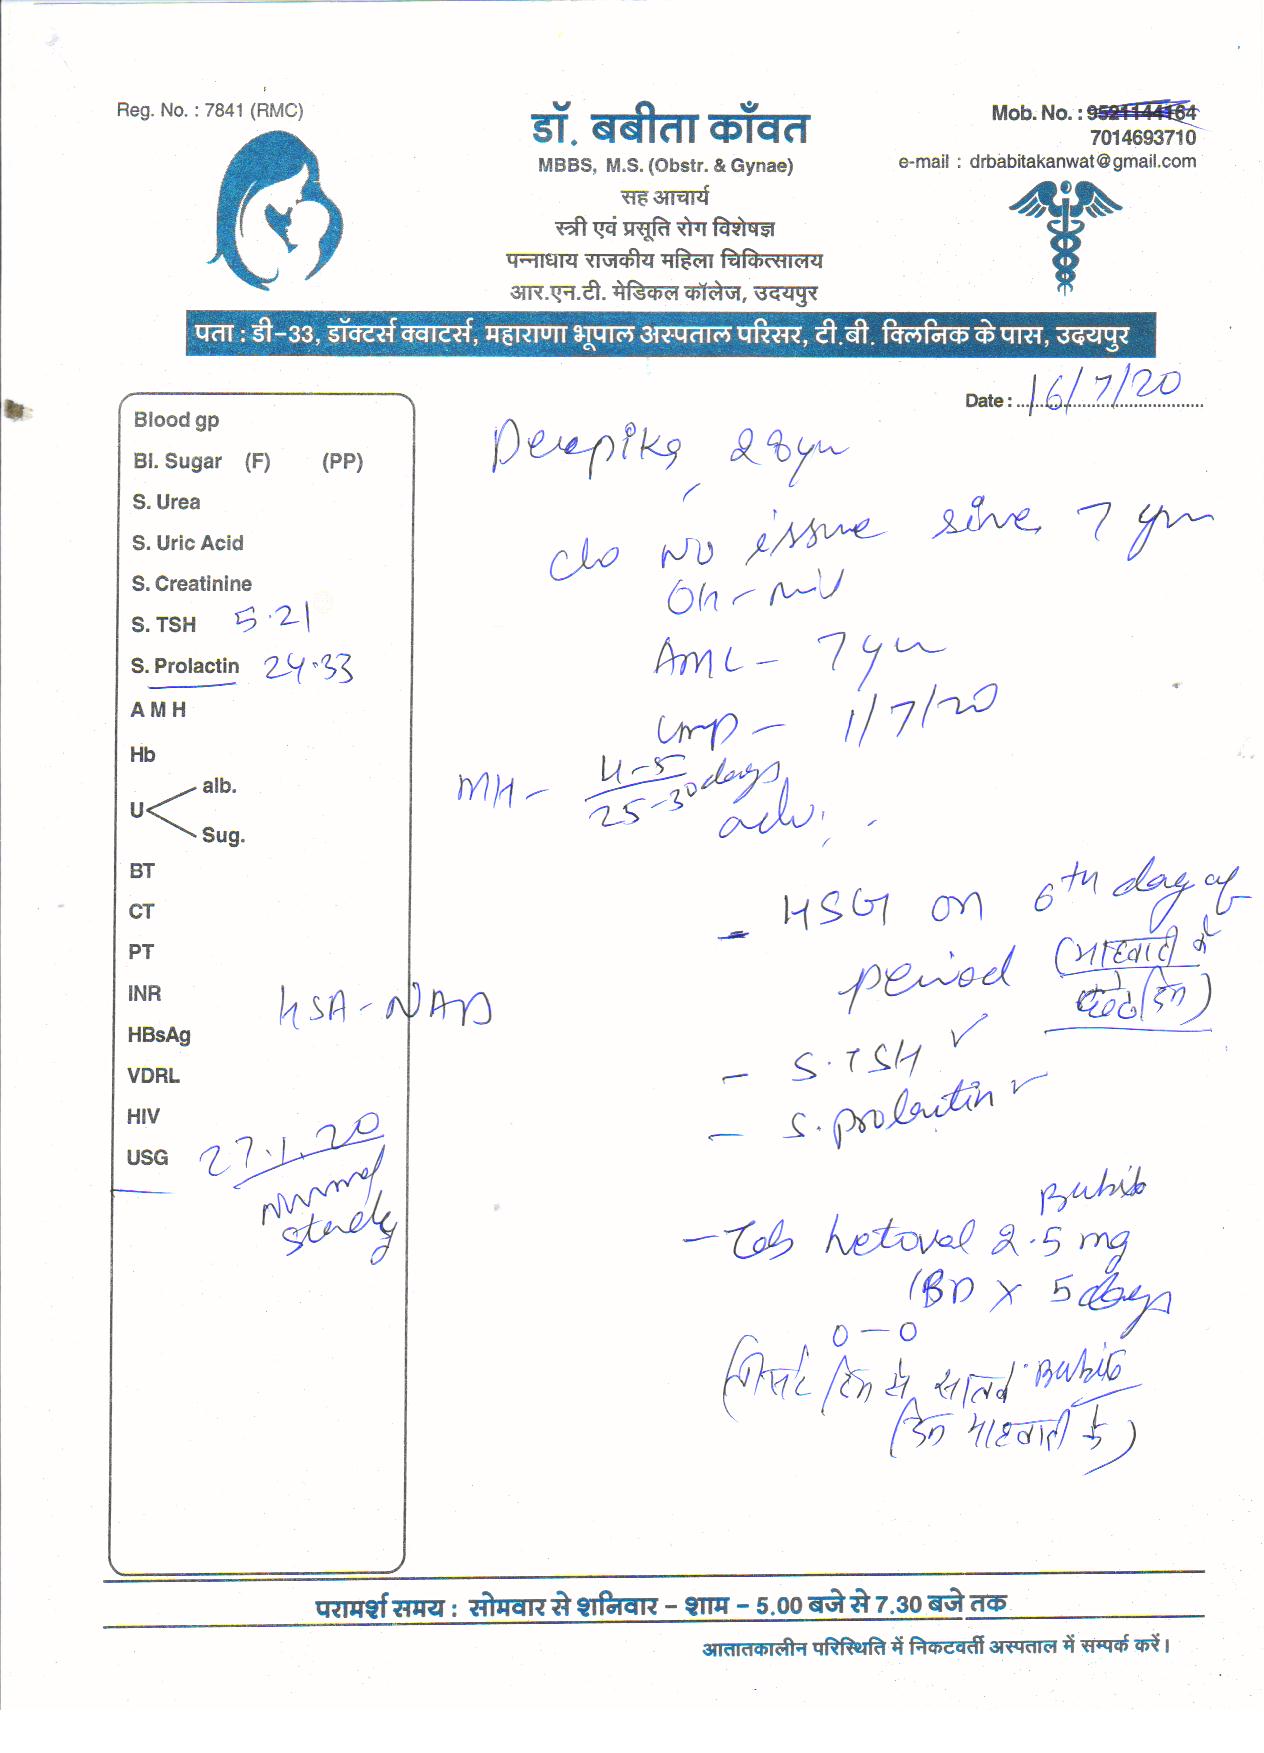 Reg. No. : 7841 (RMC)
डॉ. बबीता काँवत
MBBS, M.S. (Obstr. & Gynae)
सह आचार्य
स्त्री एवं प्रसूति रोग विशेषज्ञ
पन्नाधाय राजकीय महिला चिकित्सालय
आर.एन.टी. मेडिकल कॉलेज, उदयपुर
Mob. No. : 9521144164
7014693710
e-mail : drbabitakanwat@gmail.com
पता : डी-33, डॉक्टर्स क्वाटर्स, महाराणा भूपाल अस्पताल परिसर, टी.बी. क्लिनिक के पास, उदयपुर
Date : 16/7/20
Blood gp
Bl. Sugar (F) (PP)
S. Urea
S. Uric Acid
S. Creatinine
S. TSH 5.21
S. Prolactin 24.33
A M H
Hb
alb.
U
Sug.
BT
CT
PT
INR
HSA - NAD
HBsAg
VDRL
HIV
USG 27.1.20
Normal
study
Deepika, 28yr
c/o No issue since 7 yrs
OH - nil
AML - 7 yr
LMP - 1/7/20
MH - 4-5
25-30 days
adv.
- HSG on 6th day of
period (माहवारी के
दिन)
- S. TSH ✓
- S. prolactin ✓
- Tab Letoval 2.5 mg
1BD x 5 days
0 - 0
दिन से सातवें
दिन माहवारी के)
परामर्श समय : सोमवार से शनिवार - शाम - 5.00 बजे से 7.30 बजे तक
आतातकालीन परिस्थिति में निकटवर्ती अस्पताल में सम्पर्क करें।